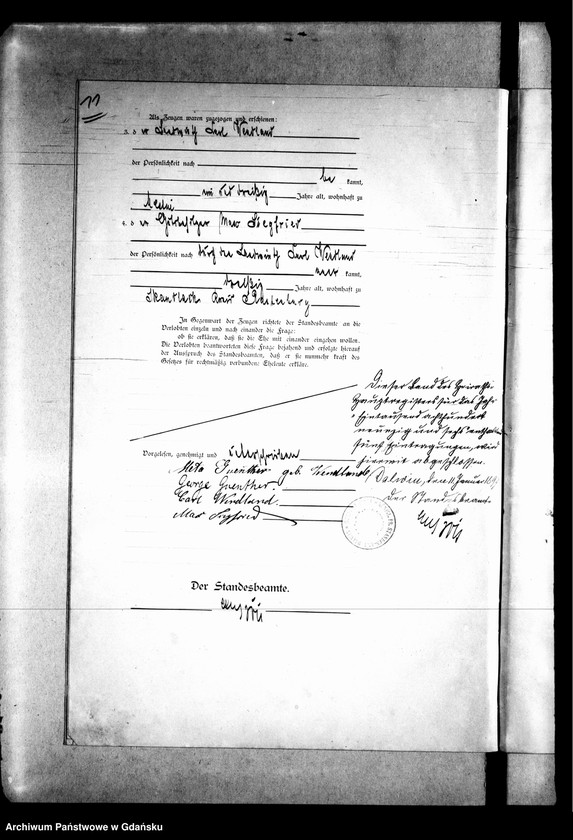 11
Als Zeugen waren zugezogen und erschienen:
der Landwirth Carl Wendland
der Persönlichkeit nach
be kannt,
dreißig Jahre alt, wohnhaft zu
der Gutsbesitzer Max Siegfried
der Persönlichkeit nach durch den Landwirth Carl Wendland
kannt,
dreißig Jahre alt, wohnhaft zu
Skandlack Kreis Rastenburg
In Gegenwart der Zeugen richtete der Standesbeamte an die
Verlobten einzeln und nach einander die Frage:
ob sie erklären, daß sie die Ehe mit einander eingehen wollen.
Die Verlobten beantworteten diese Frage bejahend und erfolgte hierauf
der Ausspruch des Standesbeamten, daß er sie nunmehr kraft des
Gesetzes für rechtmäßig verbundene Eheleute erkläre.
Dieser Band des Heirats-
Hauptregisters für das Jahr
Eintausend achthundert
neunzig und sechs enthaltend
fünf Eintragungen, wird
hiermit abgeschlossen.
den 1 Januar
Der Standesbeamte
Vorgelesen, genehmigt und unterschrieben
Meta Guenther geb. Wendland
George Guenther.
Carl Wendland.
Max Siegfried
Der Standesbeamte.
Archiwum Państwowe w Gdańsku